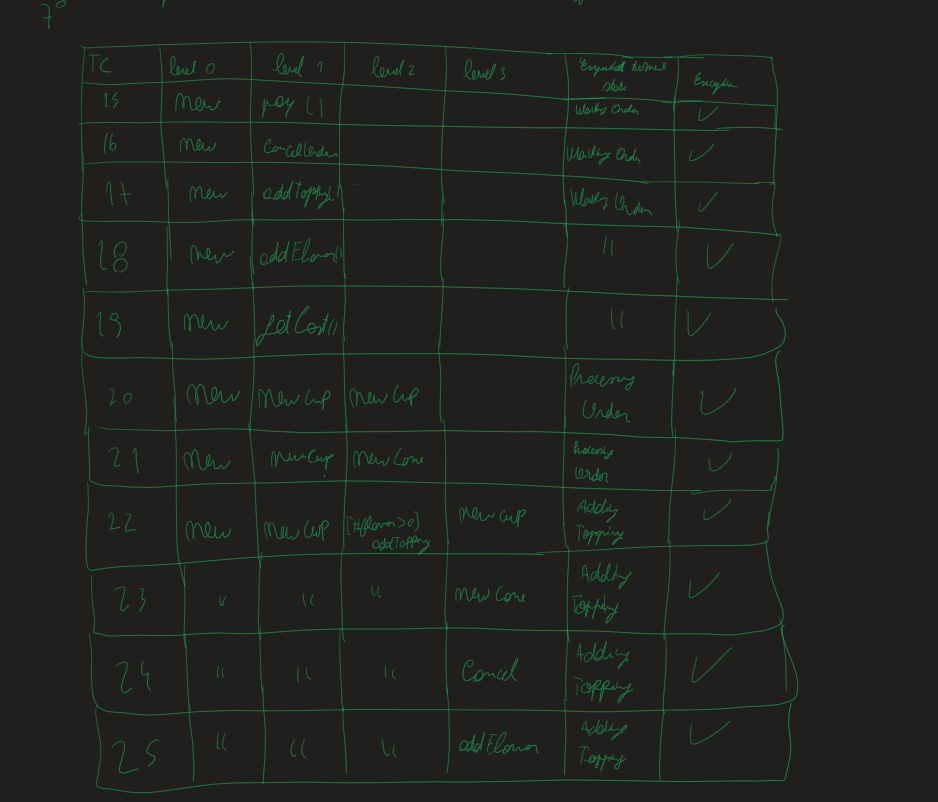 7°
TC level 0 level 1 level 2 level 3 Expected terminal state Exception
15 new pay() Waiting Order ✓
16 new CancelOrder Waiting Order ✓
17 new addTopping() Waiting Order ✓
18 new addFlavor() " ✓
19 new getCost() " ✓
20 new New Cup New Cup Processing Order ✓
21 new New Cup New Cone Processing Order ✓
22 new New Cup [#flavor>0] addTopping new cup Adding Topping ✓
23 " " " new Cone Adding Topping ✓
24 " " " Cancel Adding Topping ✓
25 " " " addFlavor Adding Topping ✓